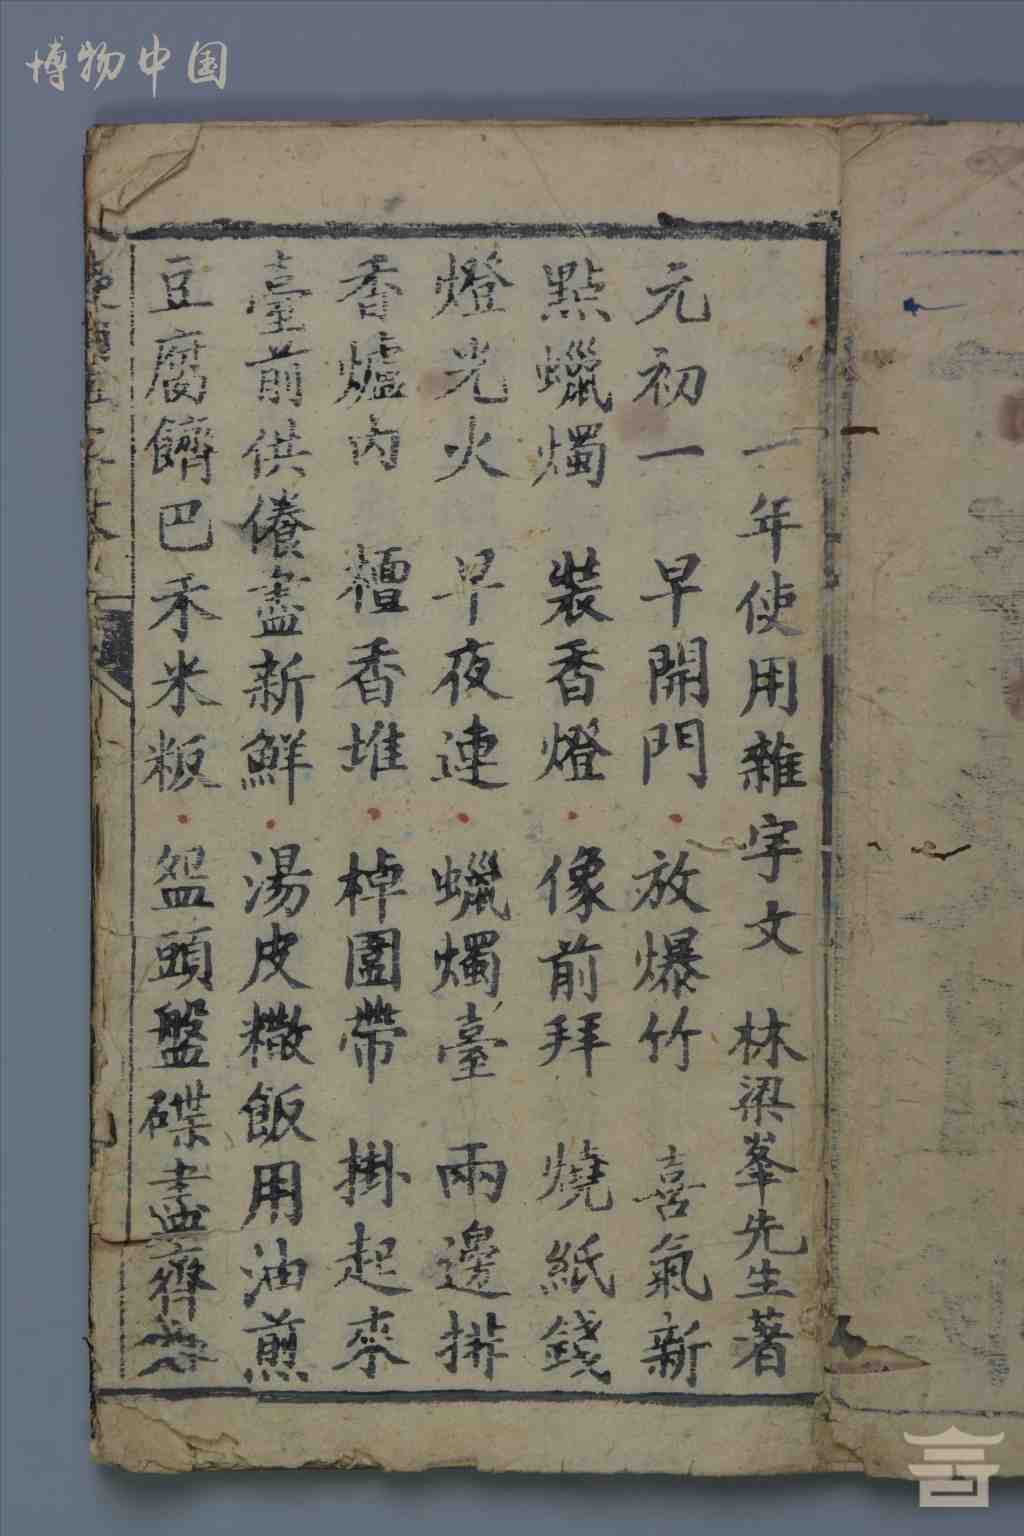 博物中国
一年使用雜字文 林梁峯先生著
元初一 早開門 放爆竹 喜氣新
點蠟燭 裝香燈 像前拜 燒紙錢
燈光火 早夜連 蠟燭臺 兩邊排
香爐內 檀香堆 棹圍帶 掛起來
臺前供餋盡新鮮 湯皮糤飯用油煎
豆腐餙巴禾米粄 盌頭盤碟盡齊